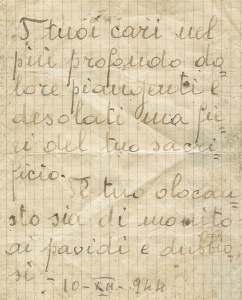 I tuoi cari nel
più profondo do=
lore piangenti e
desolati ma fie=
ri del tuo sacri=
ficio.
Il tuo olocau=
sto sia di monito
ai pavidi e dubbio=
si.
10-XII-944